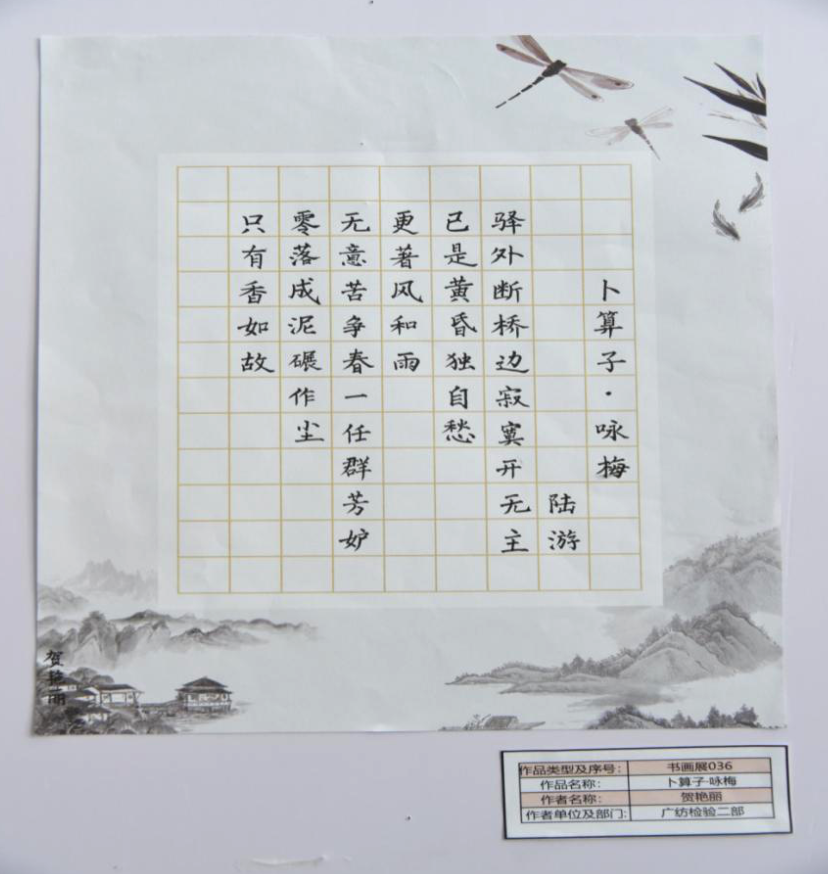 卜算子·咏梅
陆游
驿外断桥边寂寞开无主
已是黄昏独自愁
更著风和雨
无意苦争春一任群芳妒
零落成泥碾作尘
只有香如故
贺艳丽
作品类型及序号: 书画展036
作品名称: 卜算子·咏梅
作者名称: 贺艳丽
作者单位及部门: 广纺检验二部